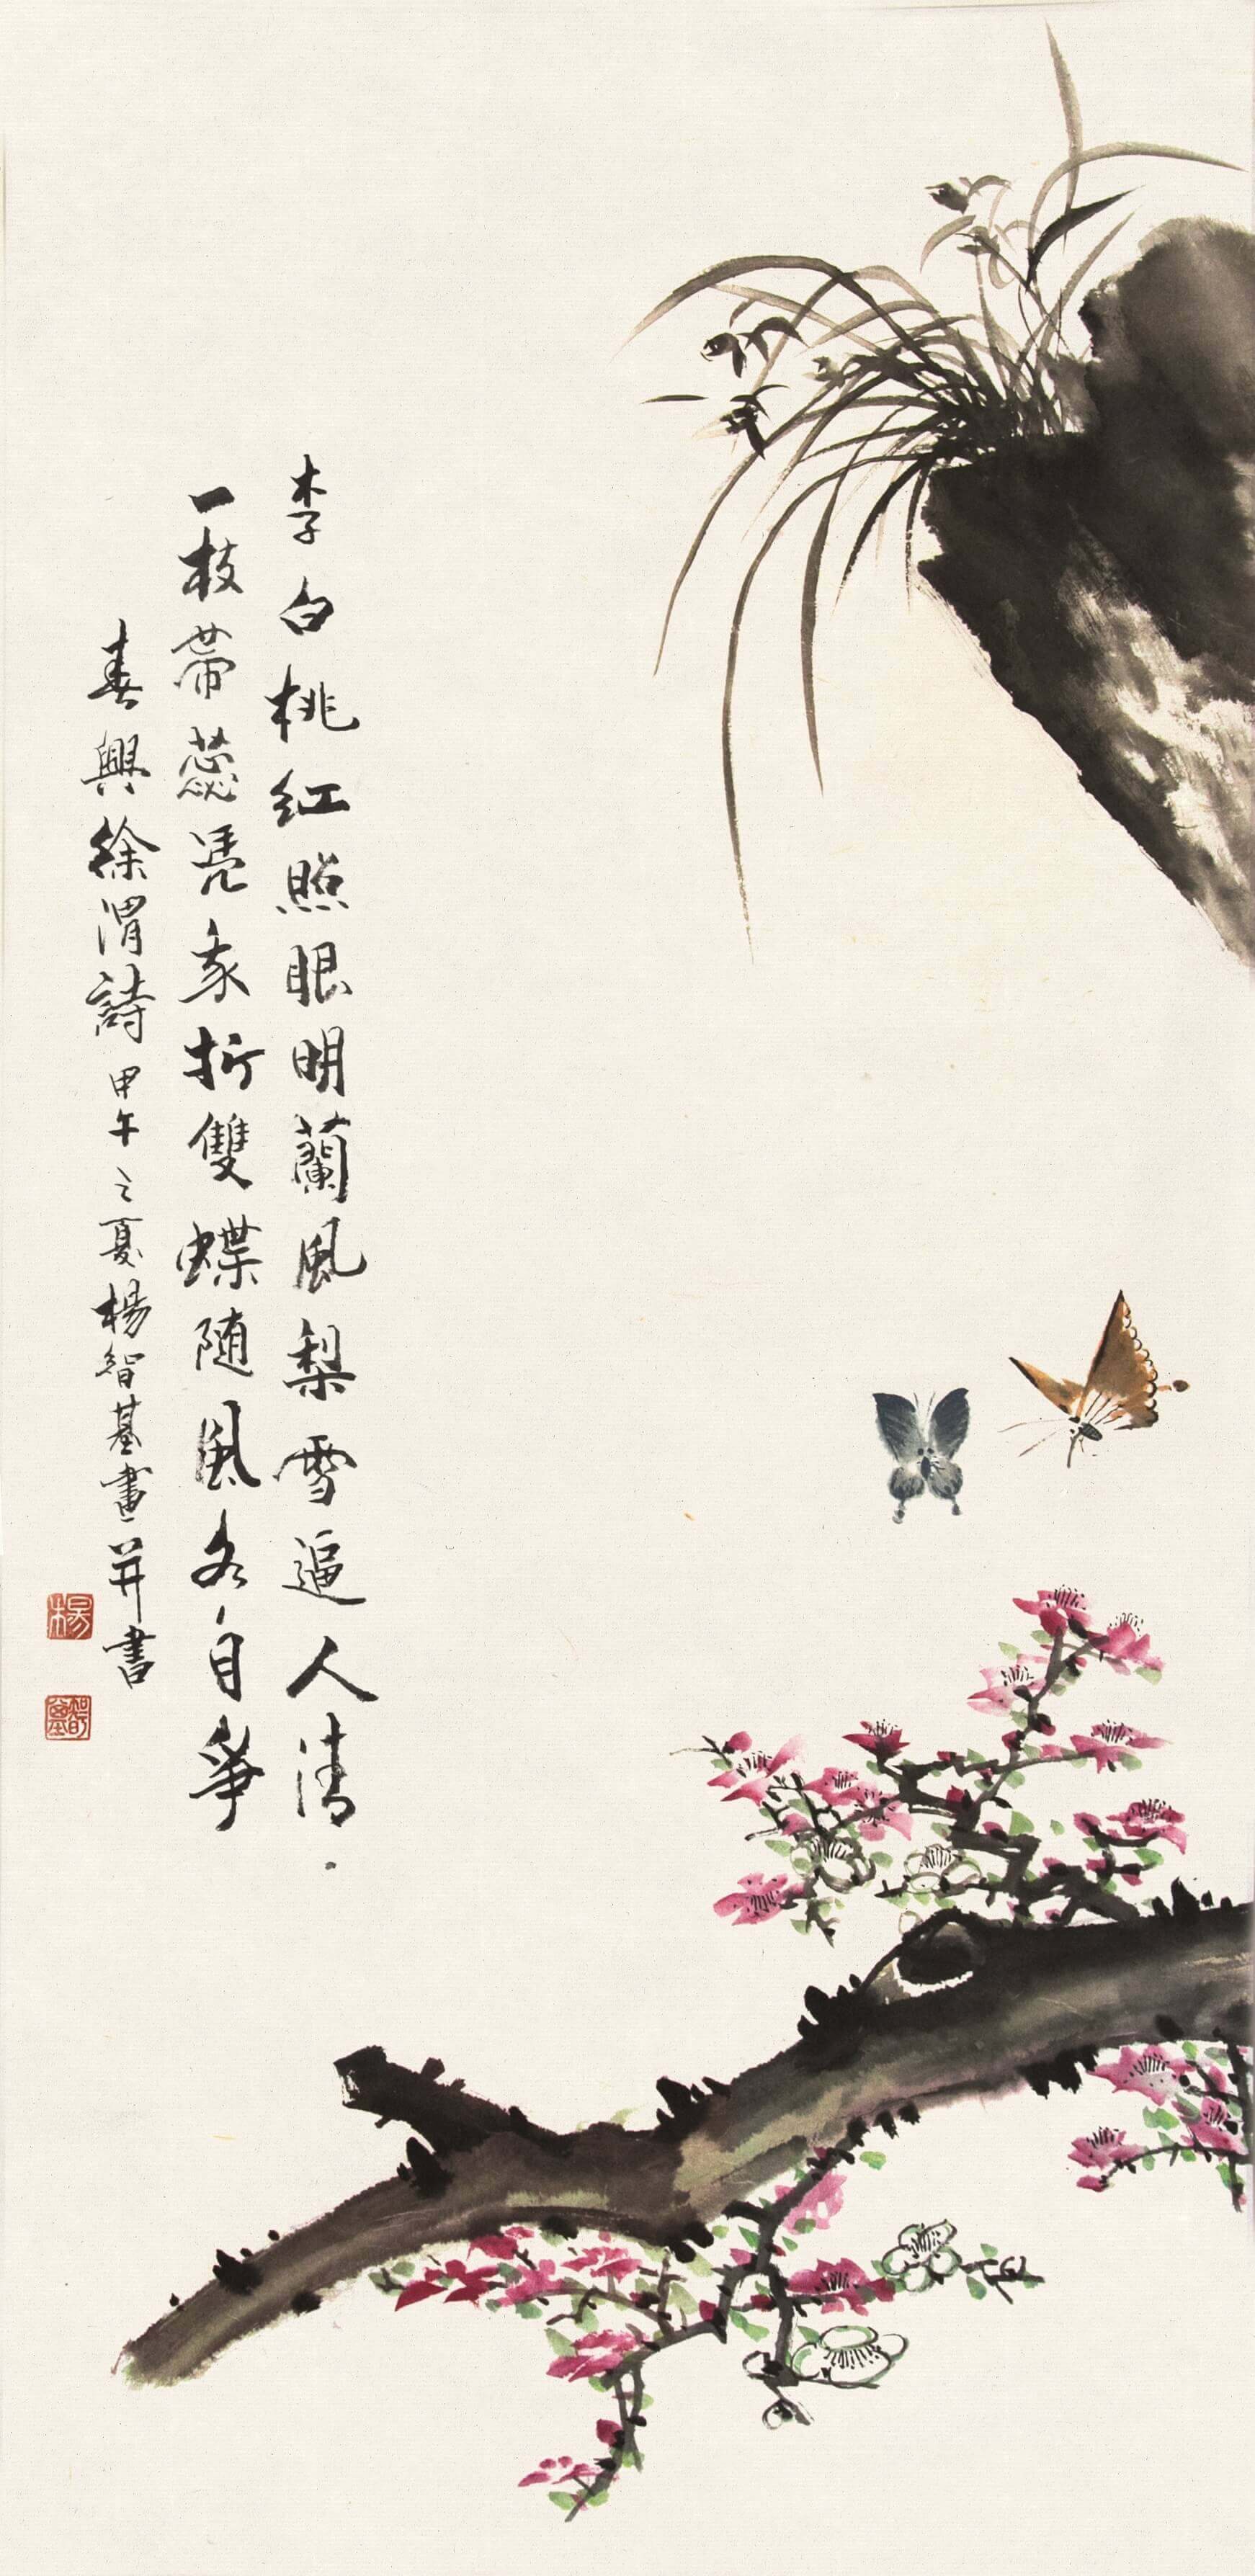 李白桃紅照眼明蘭風梨雪逼人清
一枝帶蕊憑家折雙蝶随風各自爭
春興徐渭詩甲午之夏楊智基畫并書
楊
智基